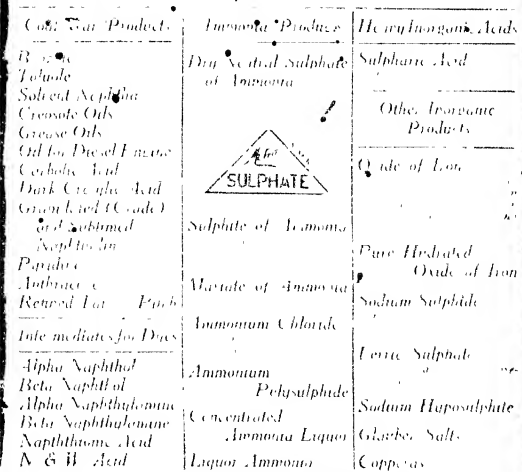 Coal Tar Products
Benzole
Toluole
Solvent Naphtha
Creosote Oils
Grease Oils
Oil for Diesel Engine
Carbolic Acid
Dark Cresylic Acid
Granulated (Crude)
and Sublimed
Naphthalin
Pyridine
Anthracene
Refined Tar Pitch
Intermediates for Dyes
Alpha Naphthol
Beta Naphthol
Alpha Naphthylamine
Beta Naphthylamine
Naphthionic Acid
N & W Acid
Ammonia Products
Dry Neutral Sulphate
of Ammonia
SULPHATE
Sulphite of Ammonia
Muriate of Ammonia
Ammonium Chloride
Ammonium
Polysulphide
Concentrated
Ammonia Liquor
Liquor Ammonia
Heavy Inorganic Acids
Sulphuric Acid
Other Inorganic
Products
Oxide of Iron
Pure Hydrated
Oxide of Iron
Sodium Sulphide
Ferric Sulphate
Sodium Hyposulphite
Glauber Salts
Copperas